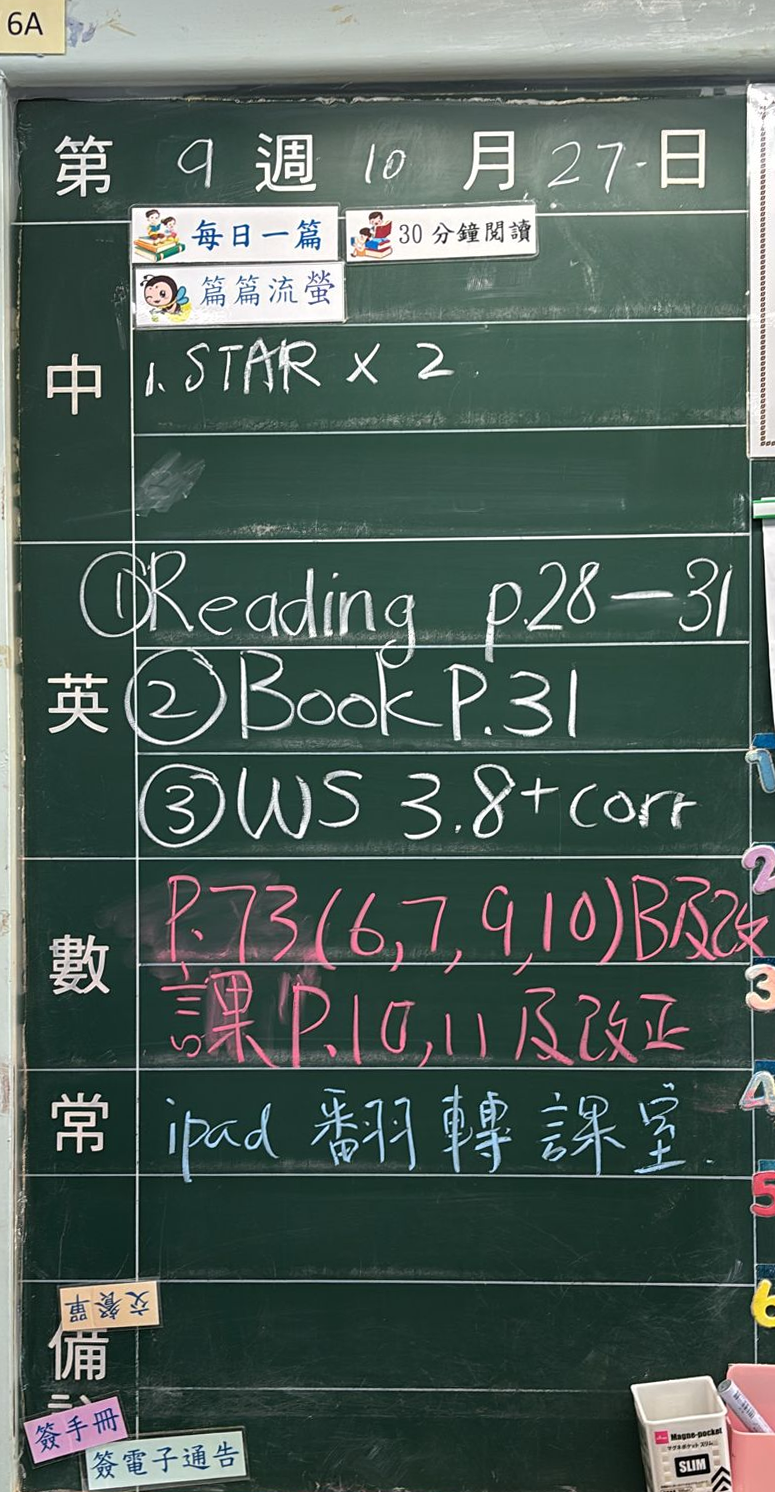 6A
第 9 週 10 月 27 日
每日一篇 30分鐘閱讀
篇篇流螢
中
1. STAR x 2
英
① Reading p.28－31
② Book P.31
③ WS 3.8+corr
數
P.73(6,7,9,10)B及改
課P.10,11及改正
常
ipad 翻轉課室.
交餐單
備
簽手冊
簽電子通告
1
2
3
4
5
6
Magne-pocket
マグネポケット スリム
SLIM